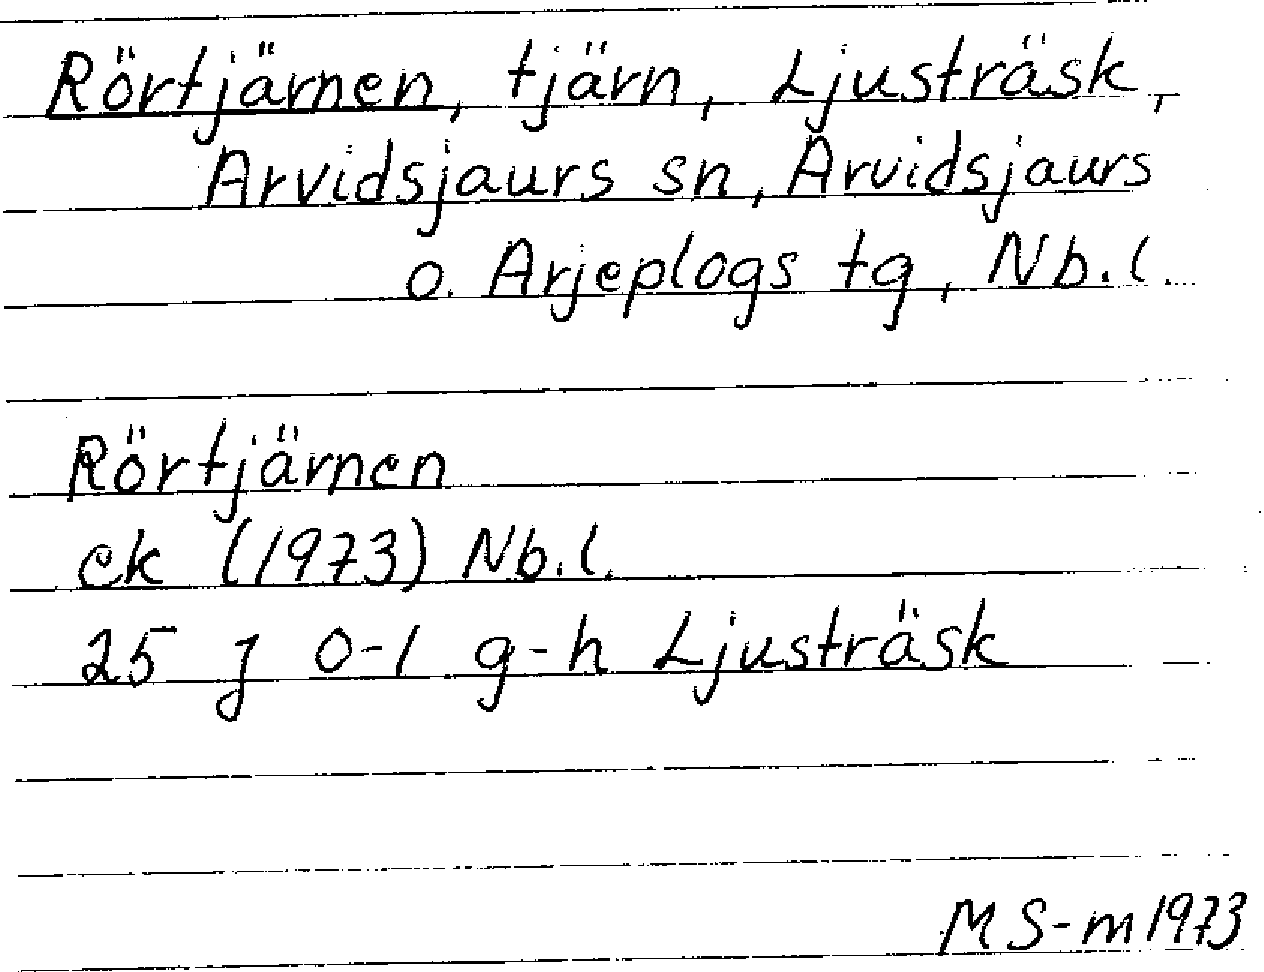 Rörtjärnen, tjärn, Ljusträsk,
Arvidsjaurs sn, Arvidsjaurs
o. Arjeplogs tg, Nb.l.
Rörtjärnen
ek (1973) Nb.l.
25 J 0-1 g-h Ljusträsk
MS-m 1973